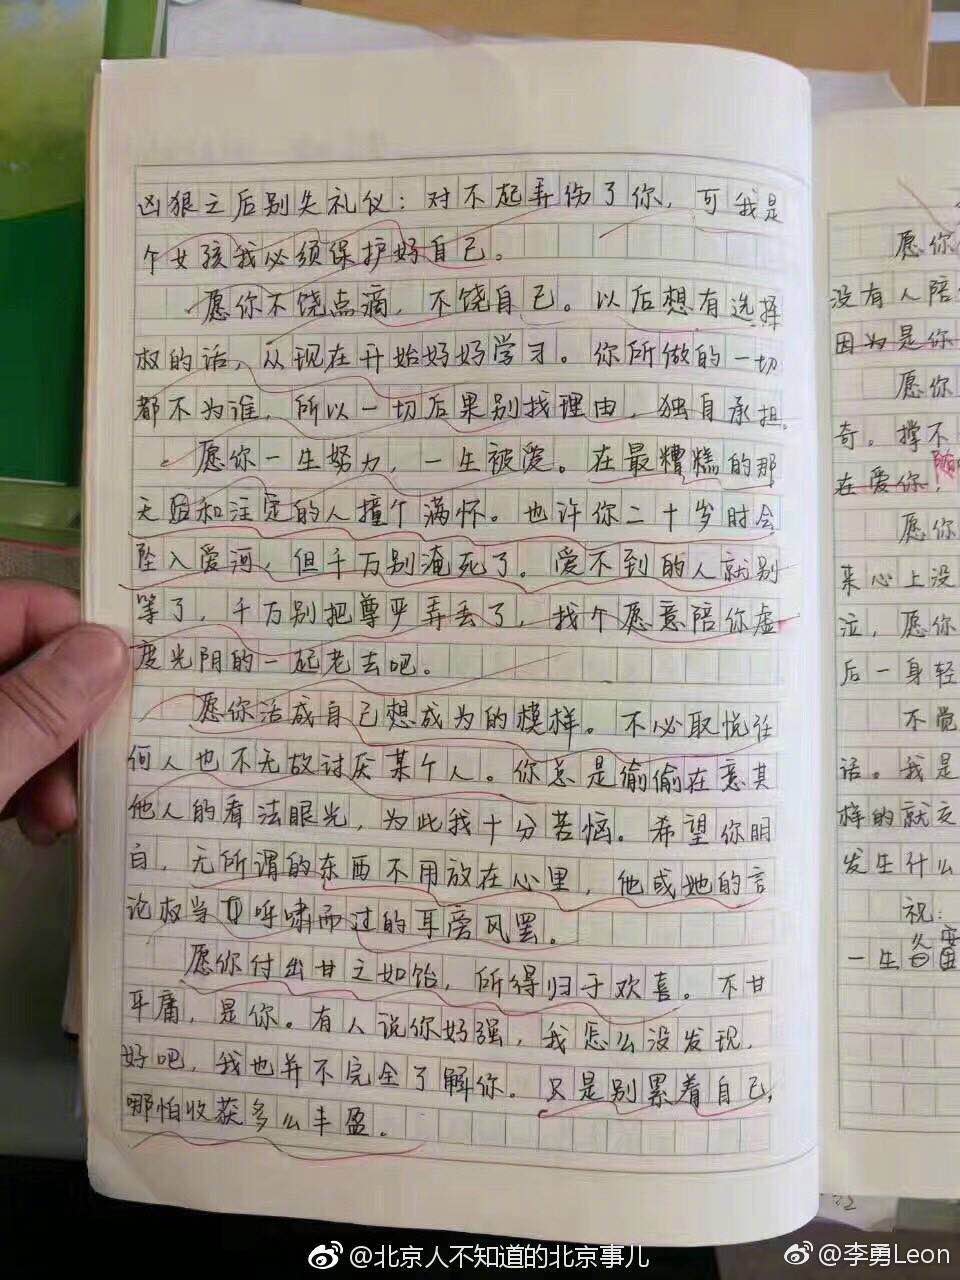 凶狠之后别失礼仪：对不起弄伤了你，可我是
个女孩我必须保护好自己。
愿你不饶点滴，不饶自己。以后想有选择
权的话，从现在开始好好学习。你所做的一切
都不为谁，所以一切后果别找理由，独自承担。
愿你一生努力，一生被爱。在最糟糕的那
天回和注定的人撞个满怀。也许你二十岁时会
坠入爱河，但千万别淹死了。爱不到的人就别
等了，千万别把尊严弄丢了，找个愿意陪你虚
度光阴的一起老去吧。
愿你活成自己想成为的模样。不必取悦任
何人也不无故讨厌某个人。你总是偷偷在意其
他人的看法眼光，为此我十分苦恼。希望你明
白，无所谓的东西不用放在心里，他或她的言
论权当耳呼啸而过的耳旁风罢。
愿你付出甘之如饴，所得归于欢喜。不甘
平庸，是你。有人说你好强，我怎么没发现，
好吧，我也并不完全了解你。只是别累着自己，
哪怕收获多么丰盈。
愿你
没有人陪
因为是你
愿你
奇。撑不
在爱你，
愿你
来心上没
泣，愿你
后一身轻
不觉
话。我是
样的就交
发生什么
祝：
一生备
@北京人不知道的北京事儿
@李勇Leon